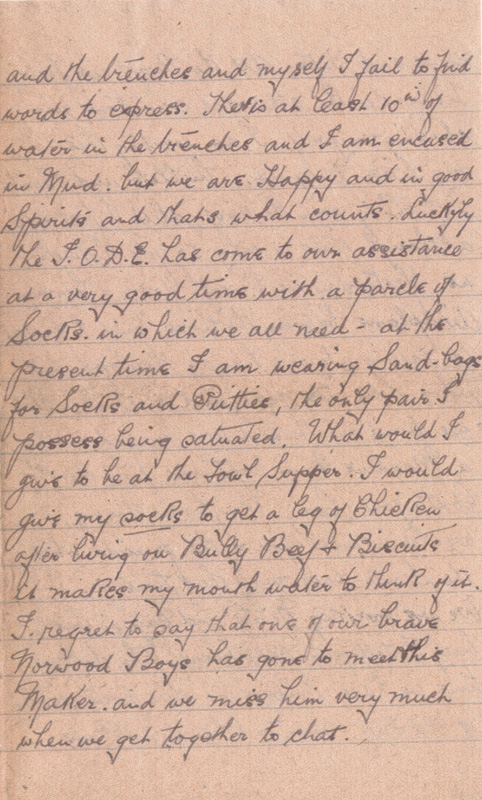 and the trenches and myself I fail to find
words to express. Theris at least 10 in of
water in the trenches and I am encused
in Mud. but we are Happy and in good
Spirits and thats what counts. Luckyly
the I.O.D.E. has come to our assistance
at a very good time with a parcle of
Socks. in which we all need - at the
present time I am wearing Sand-bags
for Socks and Putties, the only pair I
possess being satuated. What would I
give to be at the Fowl Supper. I would
give my socks to get a leg of Chicken
after living on Bully Beef & Biscuits
it makes my mouth water to think of it.
I regret to say that one of our brave
Norwood Boys has gone to meet his
Maker. and we miss him very much
when we get together to chat.